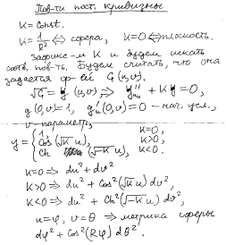 Пов-ти пост. кривизны
K = Const.
K = 1/R² ⇔ сфера, K=0 ⇔ плоскость.
Зафикс-м K и будем искать
соотв. пов-ть. Будем считать, что она
задается ф-ей G(u,v).
√G = y(u,v) ⇒ y''uu + K y = 0,
y(0,v) = 1, y'u(0,v) = 0 – нач. усл.,
v – параметр,
y = { 1, K=0,
Cos(√K u), K>0,
Ch(√-K u), K<0.
K=0 ⇒ du² + dv²
K>0 ⇒ du² + Cos²(√K u) dv²,
K<0 ⇒ du² + Ch²(√-K u) dv²,
u=φ, v=θ ⇒ метрика сферы
dφ² + Cos²(Rφ) dθ².